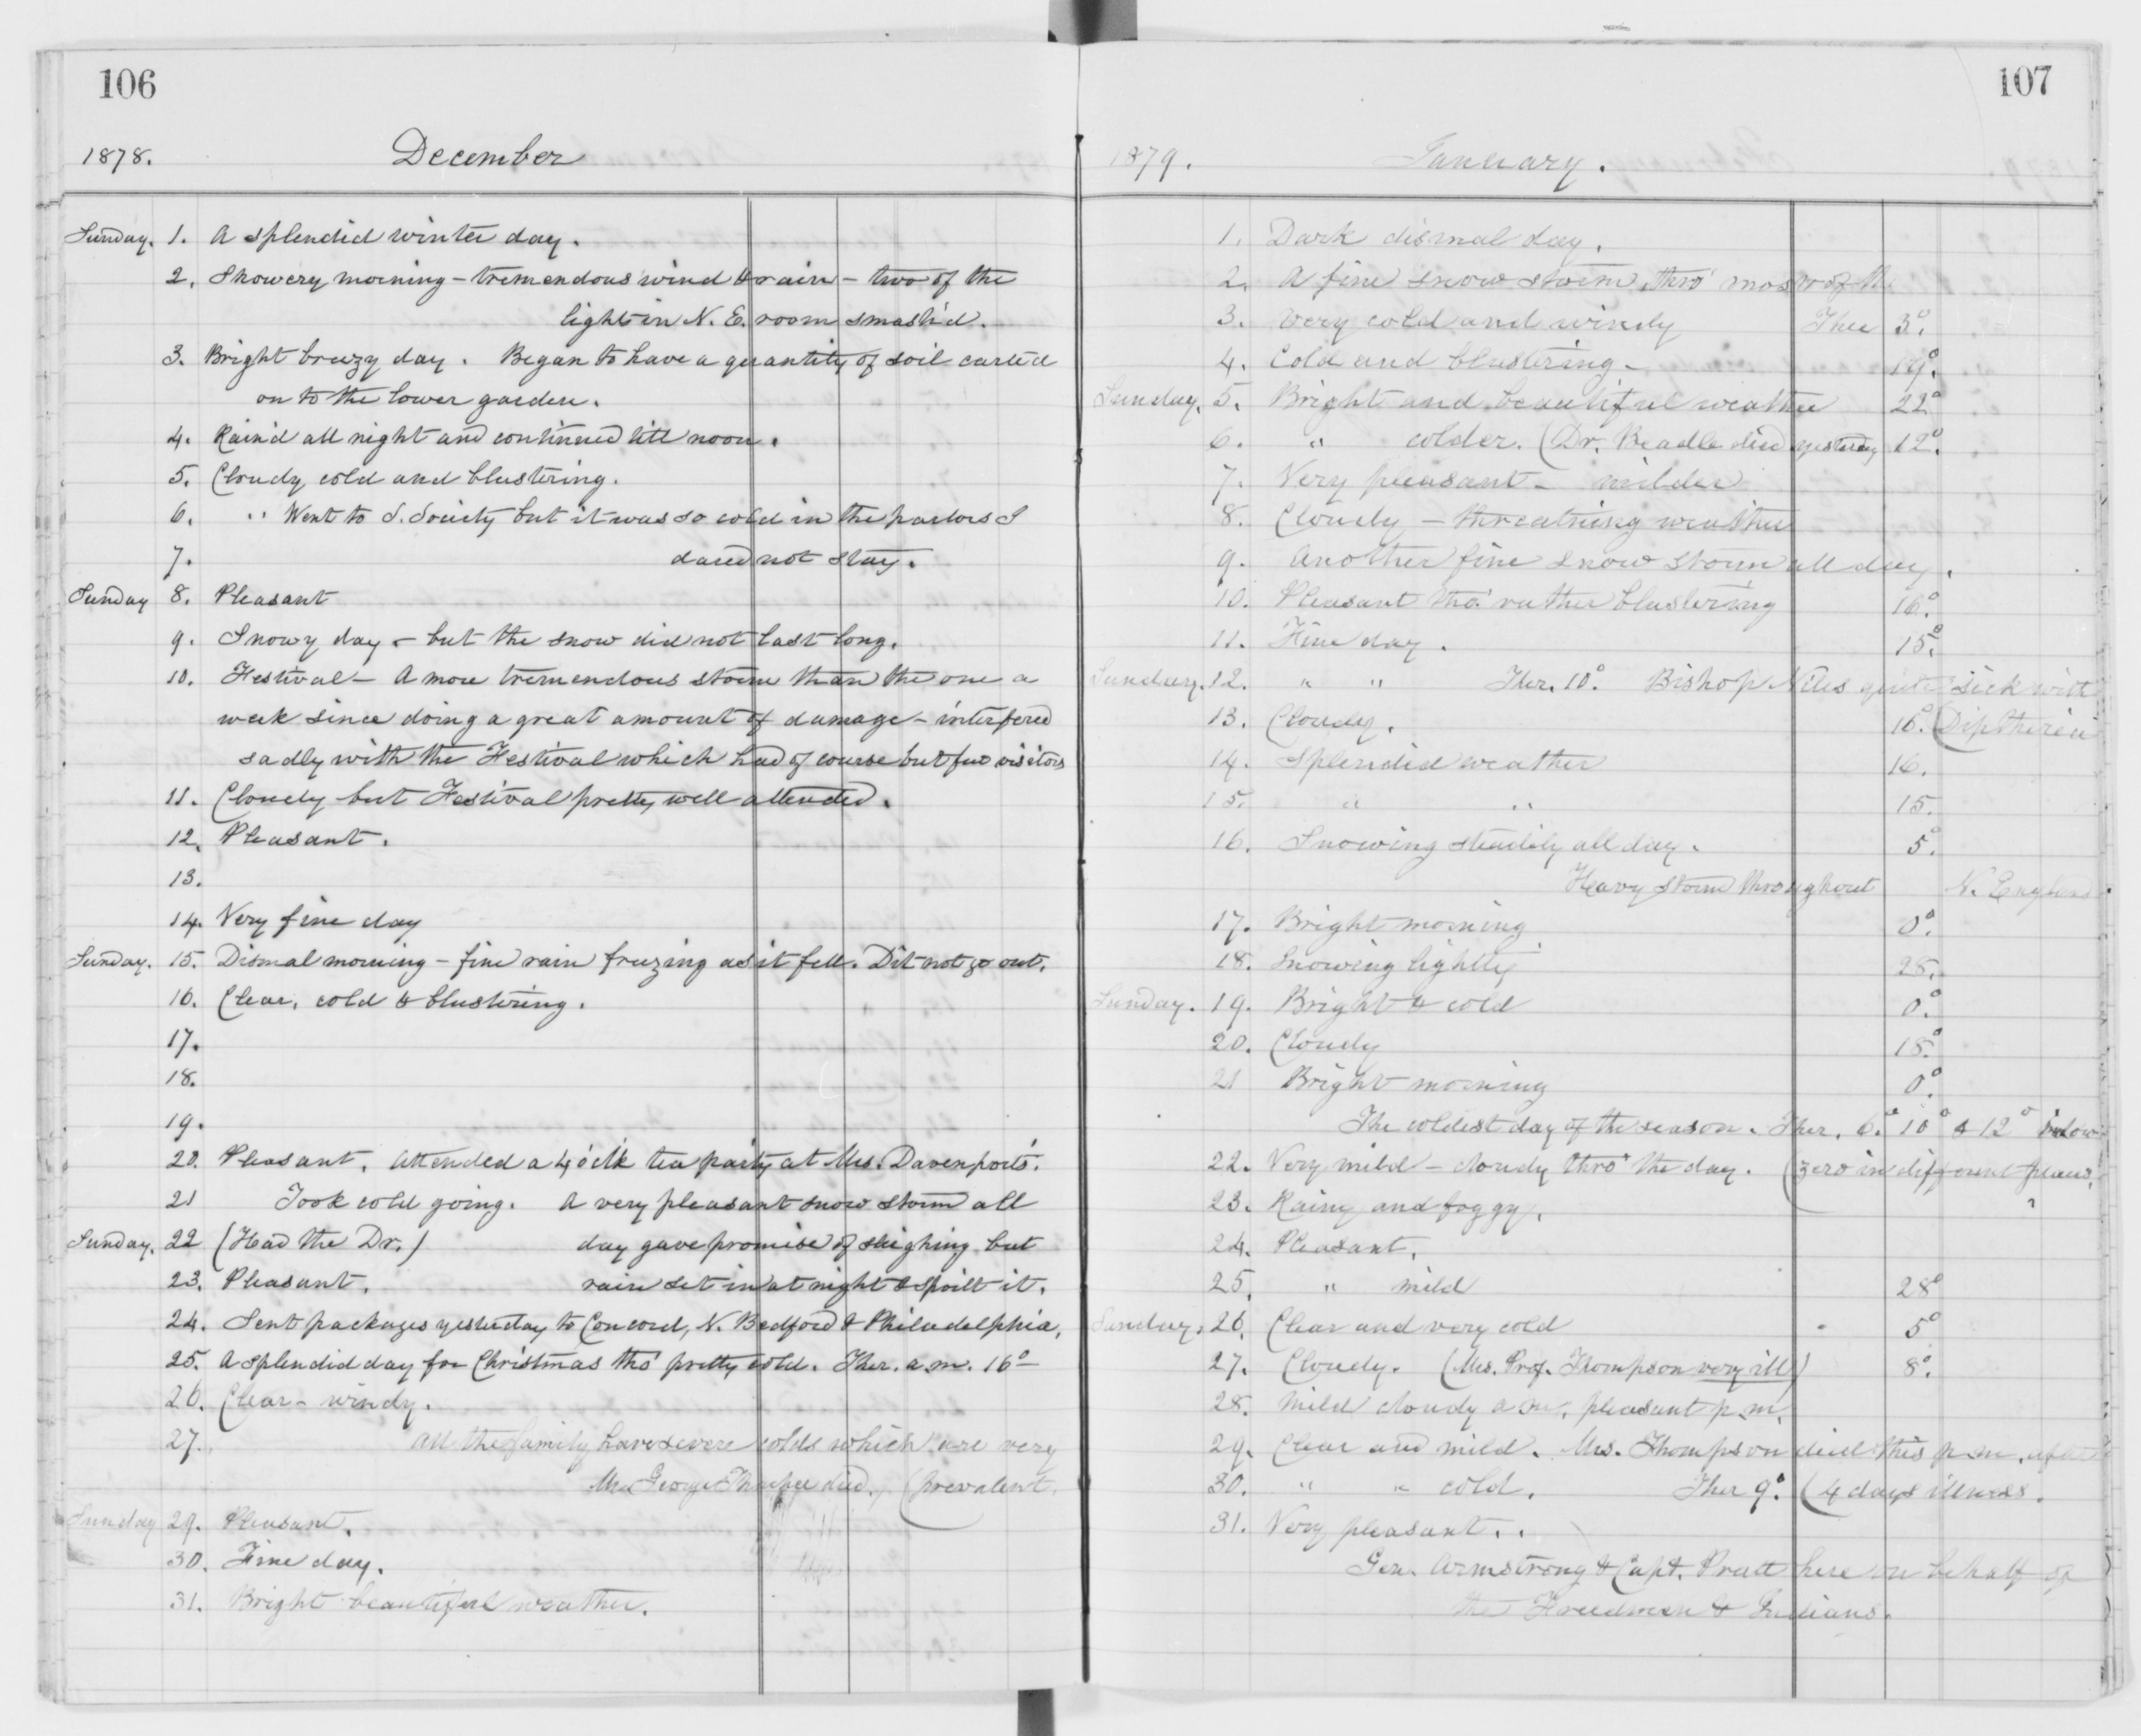 106
1878. December
Sunday. 1. A splendid winter day.
2. Showery morning - tremendous wind & rain - two of the
lights in N. E. room smash'd.
3. Bright breezy day. Began to have a quantity of soil carted
on to the lower garden.
4. Rain'd all night and continued till noon.
5. Cloudy cold and blustering.
6. " Went to S. Society but it was so cold in the parlors I
7. dared not stay.
Sunday 8. Pleasant
9. Snowy day - but the snow did not last long.
10. Festival - A more tremendous storm than the one a
week since doing a great amount of damage - interfered
sadly with the Festival which had of course but few visitors
11. Cloudy but Festival pretty well attended.
12. Pleasant.
13.
14. Very fine day
Sunday. 15. Dismal morning - fine rain freezing as it fell. Did not go out.
16. Clear, cold & blustering.
17.
18.
19.
20. Pleasant. Attended a 4 o'clk tea party at Mrs. Davenport's.
21 Took cold going. A very pleasant snow storm all
Sunday. 22 (Had the Dr.) day gave promise of sleighing but
23. Pleasant. rain set in at night & spoilt it.
24. Sent packages yesterday to Concord, N. Bedford & Philadelphia.
25. A splendid day for Christmas tho' pretty cold. Ther. a.m. 16°
26. Clear - windy.
27. All the family have severe colds which are very
Mr. George died. (prevalent.
Sunday 29. Pleasant.
30. Fine day.
31. Bright beautiful weather.
107
1879. January.
1. Dark dismal day.
2. A fine snow storm thro' most of the
3. Very cold and windy Ther 3°.
4. Cold and blustering. 19°.
Sunday. 5. Bright and beautiful weather 22°
6. " colder. (Dr. Beadle died yesterday 12°.
7. Very pleasant - milder
8. Cloudy - threatning weather
9. Another fine snow storm all day.
10. Pleasant tho' rather blustering 16°.
11. Fine day. 15°.
Sunday. 12. " " Ther. 10°. Bishop Niles quite sick with
13. Cloudy. 16°. (Diptheria
14. Splendid weather 16.
15. " " 15.
16. Snowing steadily all day. 5°.
Heavy storm throughout N. England
17. Bright morning 0°.
18. Snowing lightly 28.
Sunday. 19. Bright & cold 0°.
20. Cloudy 18°.
21 Bright morning 0°.
The coldest day of the season. Ther. 6.° 10° & 12° below
22. Very mild - cloudy thro' the day. (zero in different places.
23. Rainy and foggy.
24. Pleasant.
25. " mild 28°
Sunday. 26. Clear and very cold 5°
27. Cloudy. (Mrs. Prof. Thompson very ill) 8°.
28. Mild cloudy a.m. pleasant p.m.
29. Clear and mild. Mrs. Thompson died this p.m. after
30. " " cold. Ther 9°. (4 days illness.
31. Very pleasant..
Gen. Armstrong & Capt. Pratt here on behalf of
the Freedmen & Indians.